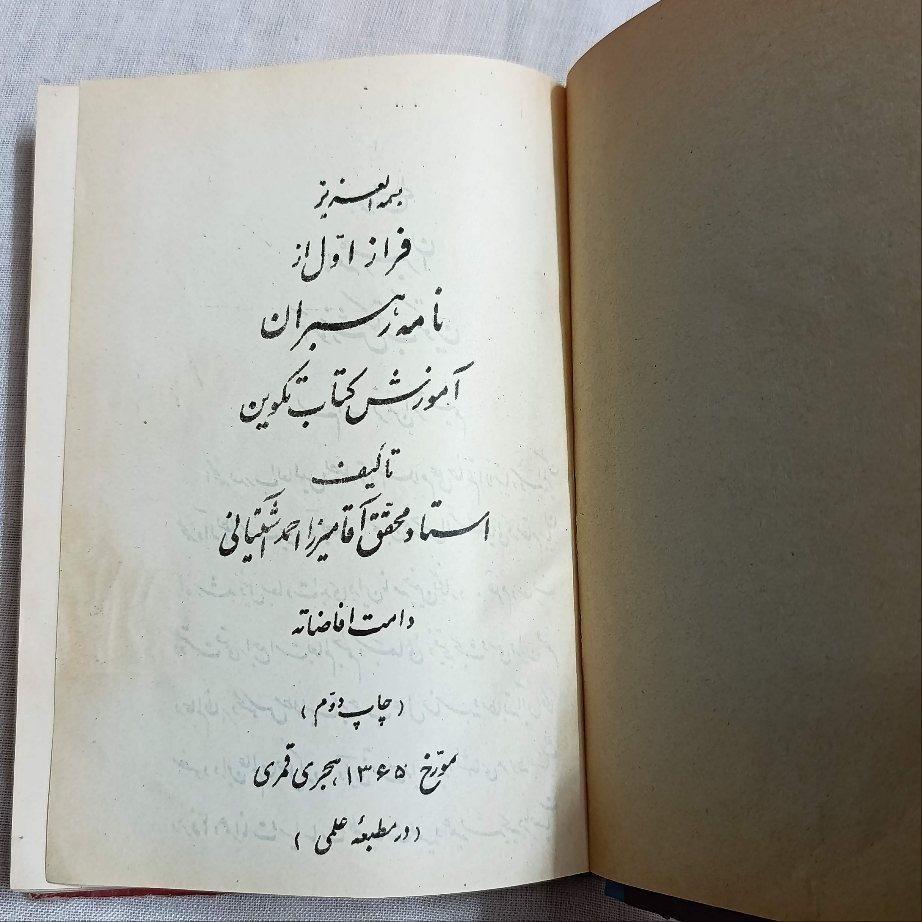 بسمه العزیز
فراز اوّل از
نامه رهبران
آموزش کتاب تکوین
تألیف
استاد محقق آقا میرزا احمد آشتیانی
دامت افاضاته
(چاپ دوّم)
مورّخ ۱۳۶۵ هجری قمری
(در مطبعهٔ علمی)